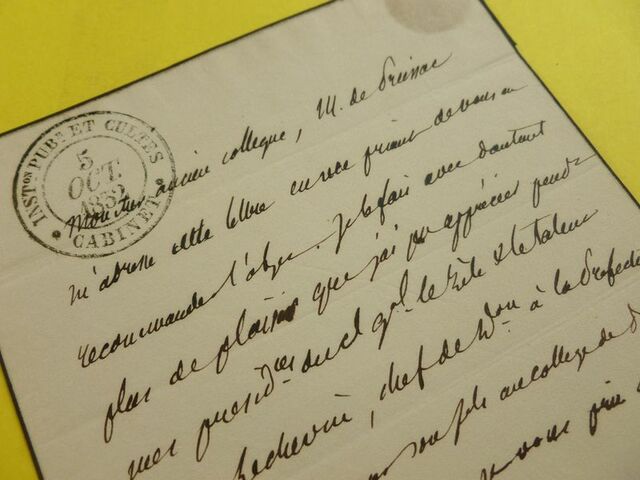 INST.ON PUB.E ET CULTES
5
OCT.
1852
* CABINET *
Mon cher ancien collègue, M. de
m'adresse cette lettre en me priant de vous en
recommander l'objet. Je le fais avec d'autant
plus de plaisir que j'ai pu apprécier pend.t
mes le zèle & le talent
chef de D.on à la Préfecture
son fils au collège de
vous prie